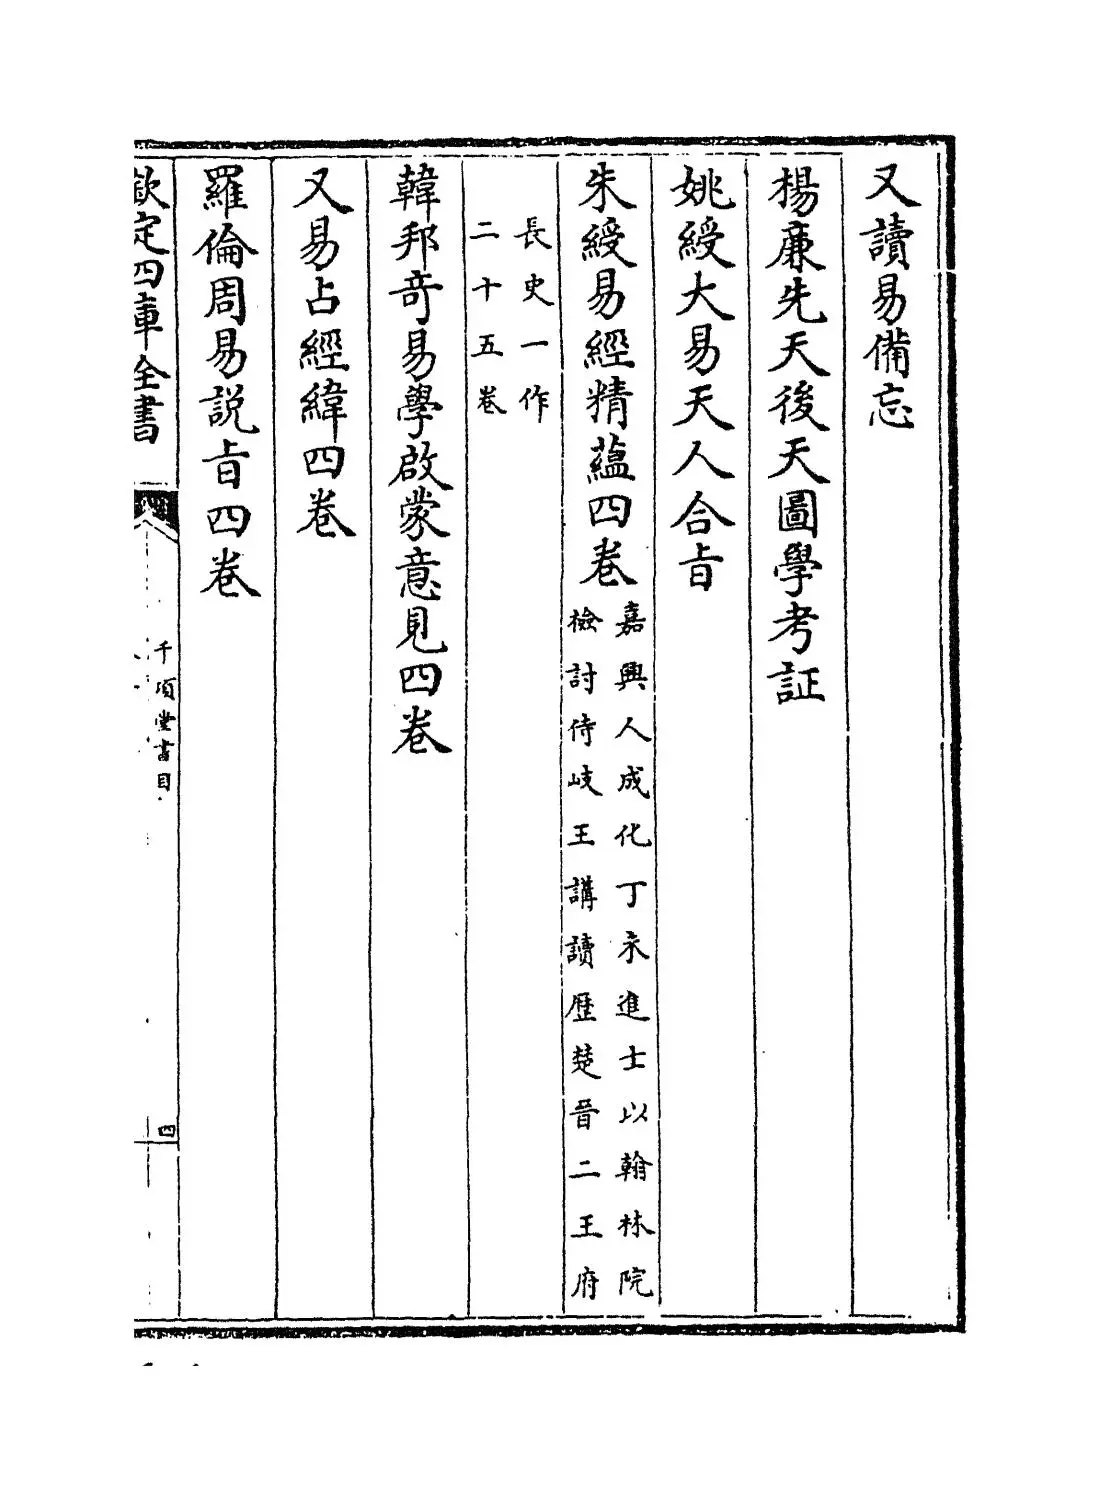 又讀易備忘
楊廉先天後天圖學考証
姚綬大易天人合㫖
朱綬易經精蘊四卷
嘉興人成化丁未進士以翰林院
檢討侍岐王講讀歴楚晉二王府
長史一作
二十五卷
韓邦竒易學啟蒙意見四卷
又易占經緯四卷
羅倫周易説㫖四卷
欽定四庫全書
千頃堂書目
四